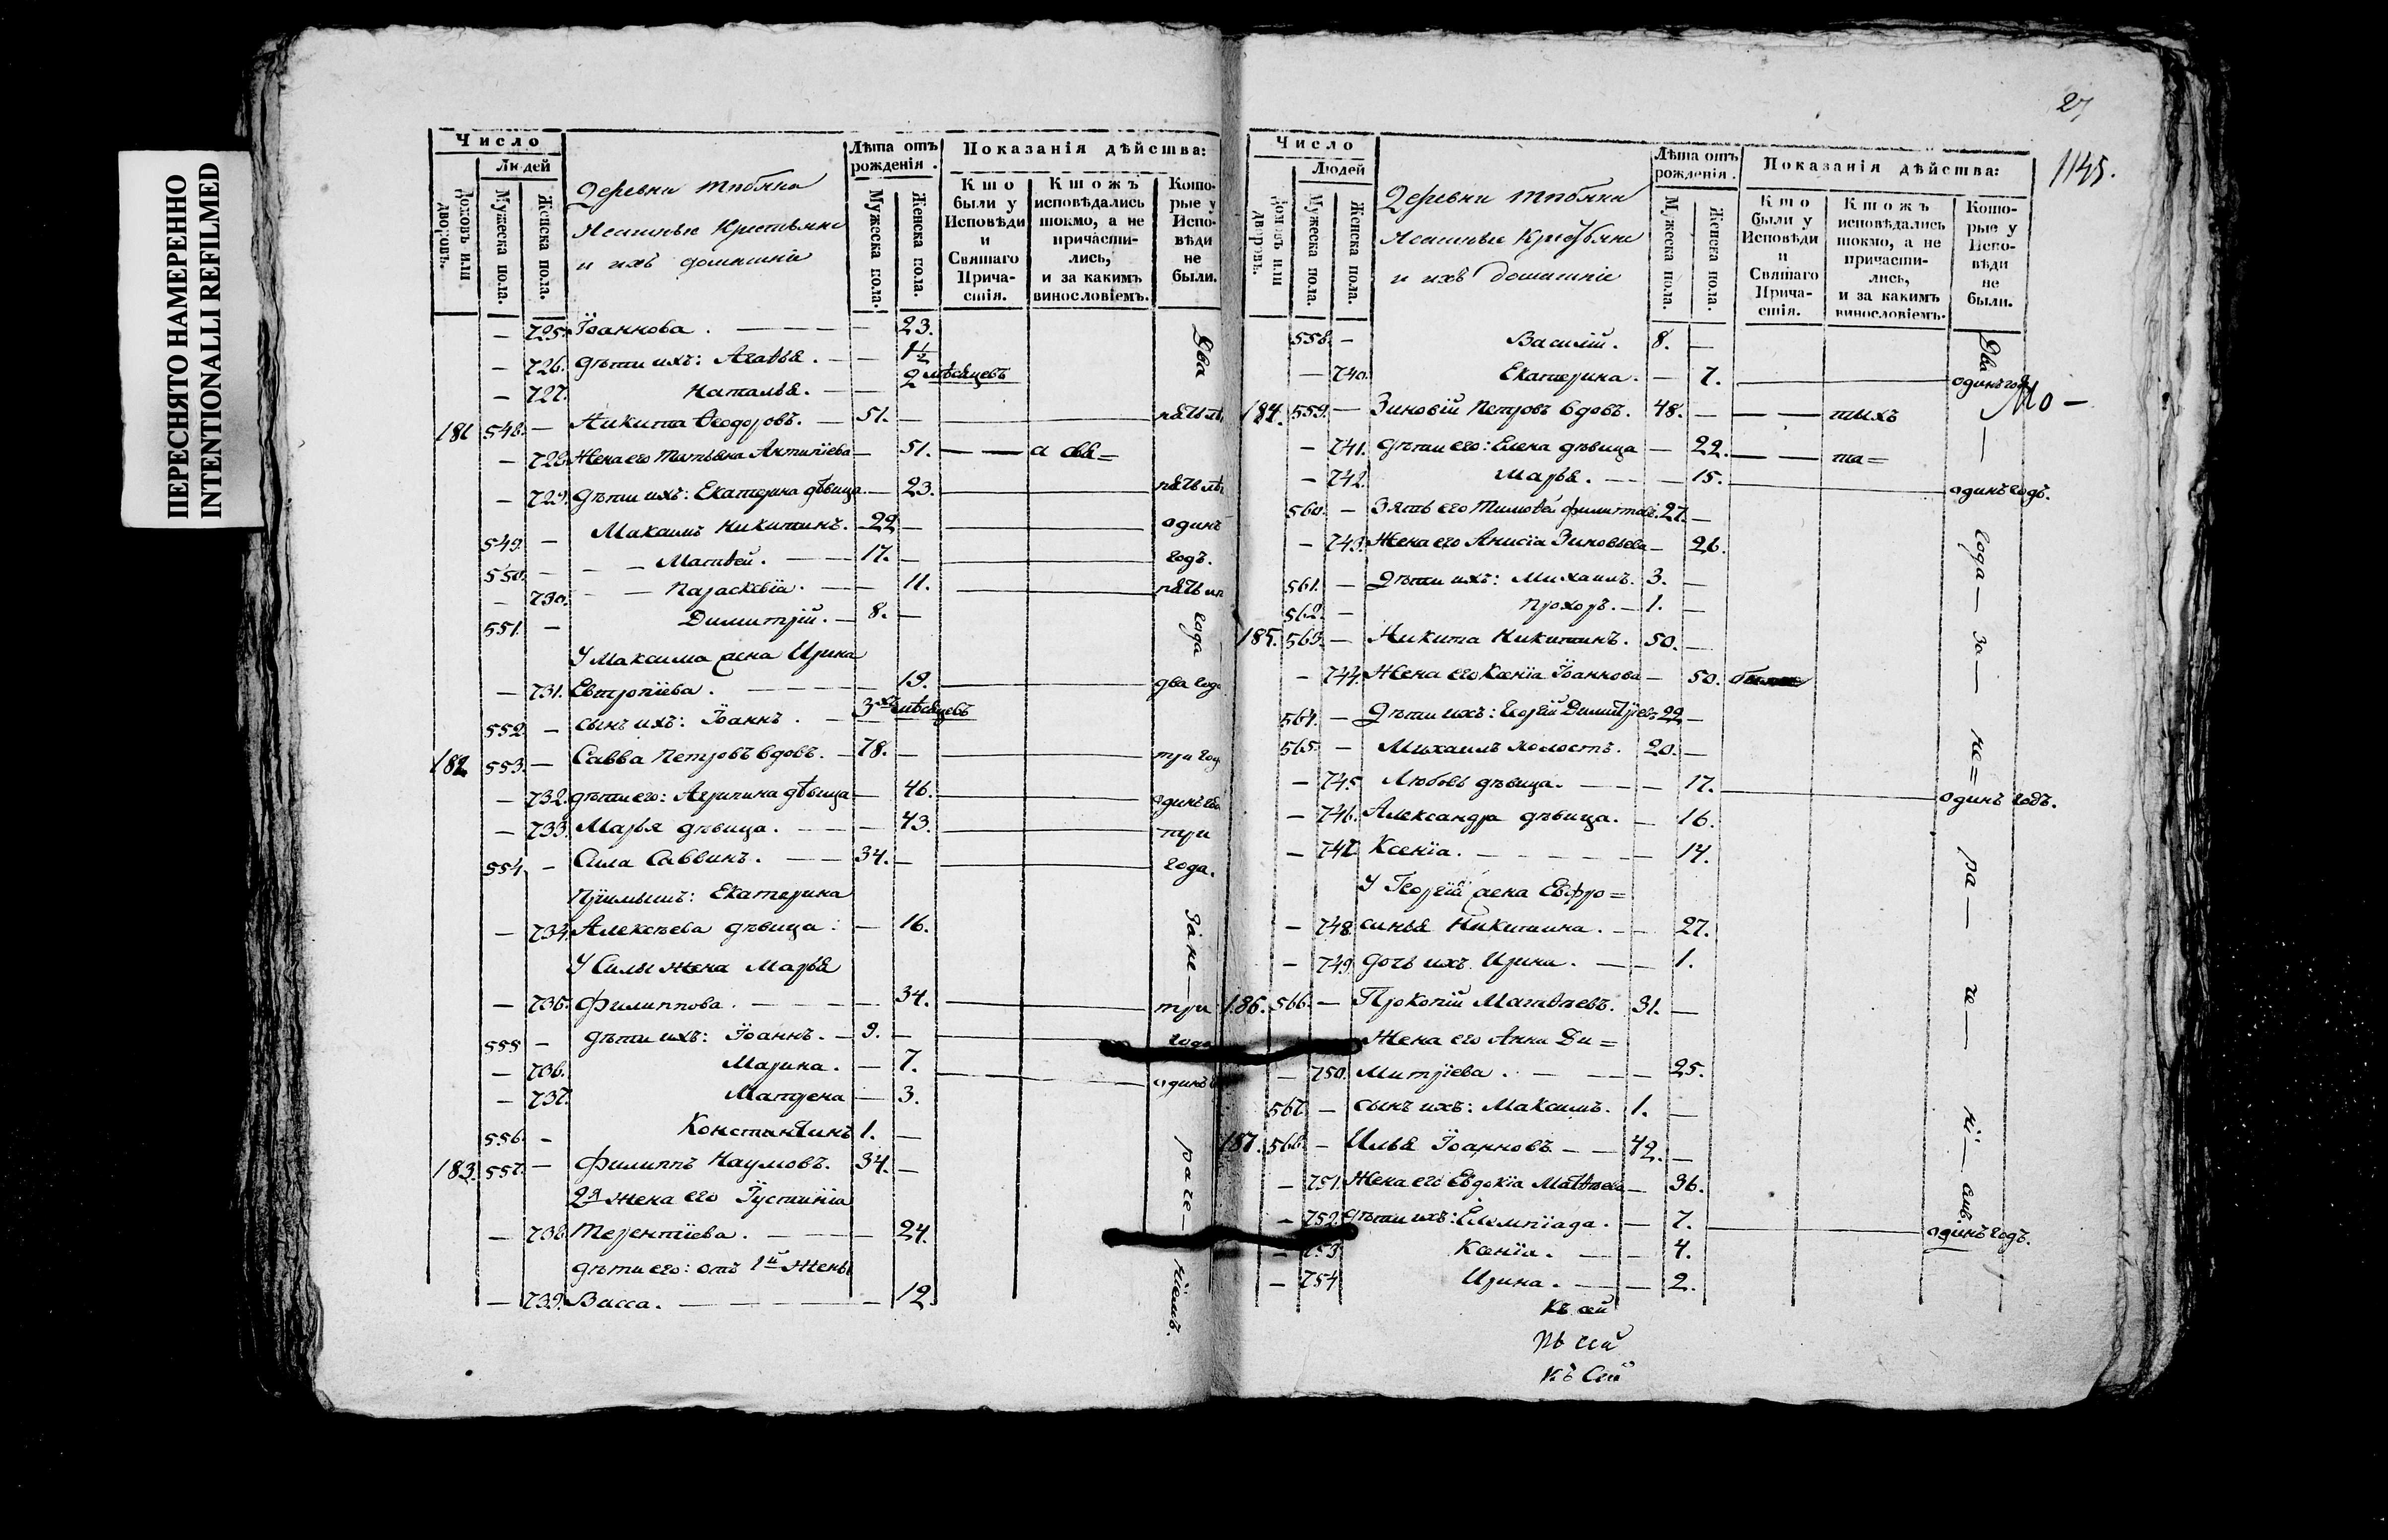 ПЕРЕСНЯТО НАМЕРЕННО
INTENTIONALLI REFILMED
Число
Людей
Домовъ или дворовъ.
Мужеска пола.
Женска пола.
Деревни
Ясашные Крестьяне
и ихъ домашніе
Лѣта отъ рожденія.
Мужеска пола.
Женска пола.
Показанія дѣйства:
Кто были у Исповѣди и Святаго Причастія.
Ктожъ исповѣдались токмо, а не причастились, и за какимъ винословіемъ.
Которые у Исповѣди не были.
— 725. Іоаннова. — 23.
— 726. дѣти ихъ: Агаѳья. — 1½
— 727. Наталья. — 2 мѣсяцевъ
Два
181 548. — Никита Ѳеодоровъ. 51. —
— 728. Жена его Татьяна Антипіева — 51.
— 729. дѣти ихъ: Екатерина дѣвица — 23.
549. — Максимъ Никитинъ. 22 — одинъ
550. — Матѳей. 17. — годъ.
— 730. Параскевія. — 11.
551. — Димитрій. 8. —
года
У Максима жена Ирина
— 731. Евтропіева. — 19. два года
552. — сынъ ихъ: Іоаннъ. 3хъ мѣсяцевъ
182 553. — Савва Петровъ вдовъ. 78. — три год
— 732. дѣти его: Агрипина дѣвица — 46.
— 733. Марья дѣвица. — 43. три
554. — Сила Саввинъ. 34. — года.
Пріимышъ: Екатерина
— 734. Алексѣева дѣвица: — 16.
У Силы жена Марья
— 735. Филиппова. — 34. три
За не—
555 — дѣти ихъ: Іоаннъ. 9. — года
— 736. Марина. — 7.
— 737. Магдена — 3.
556. — Константинъ 1. —
183. 557. — Филиппъ Наумовъ. 34. —
2я жена его Іустинія
— 738. Терентіева. — 24.
раче—
дѣти его: отъ 1й жены
— 739. Васса. — 12
ніемъ.
27
1145.
Число
Людей
Домовъ или дворовъ.
Мужеска пола.
Женска пола.
Деревни
Ясашные Крестьяне
и ихъ домашніе
Лѣта отъ рожденія.
Мужеска пола.
Женска пола.
Показанія дѣйства:
Кто были у Исповѣди и Святаго Причастія.
Ктожъ исповѣдались токмо, а не причастились, и за какимъ винословіемъ.
Которые у Исповѣди не были.
558. — Василій. 8. —
Два
— 740. Екатерина. — 7. одинъ годъ
Мо —
184. 559. — Зиновій Петровъ вдовъ. 48. — тыхъ
— 741. дѣти его: Елена дѣвица — 22. та=
— 742. Марья. — 15. одинъ годъ.
560. — Зять его Тимоѳей Филиповъ. 27. —
— 743. Жена его Анисія Зиновьева — 26.
года —
561. — Дѣти ихъ: Михаилъ. 3. —
562. — Прохоръ. 1. —
185. 563. — Никита Никитинъ. 50. —
за —
— 744. Жена его Ксенія Іоаннова — 50.
564. — Дѣти ихъ: Георгій Димитріевъ 22 —
565. — Михаилъ холостъ. 20. —
не=
— 745. Любовь дѣвица. — 17. одинъ годъ.
— 746. Александра дѣвица. — 16.
— 747. Ксенія. — 14.
ра —
У Георгія жена Евфро=
— 748. синья Никитина. — 27.
— 749. дочь ихъ Ирина. — 1.
186. 566. — Прокопій Матѳѣевъ. 31. —
че —
Жена его Анна Ди=
— 750. митріева. — 25.
567. — сынъ ихъ: Максимъ. 1. —
187. 568. — Илья Іоанновъ. 42. —
ні —
— 751. Жена его Евдокія Матѳѣева — 36.
— 752. дѣти ихъ: Елемпіада. — 7. одинъ годъ.
— 753. Ксенія. — 4.
— 754 Ирина. — 2.
Къ сей
Къ Сей